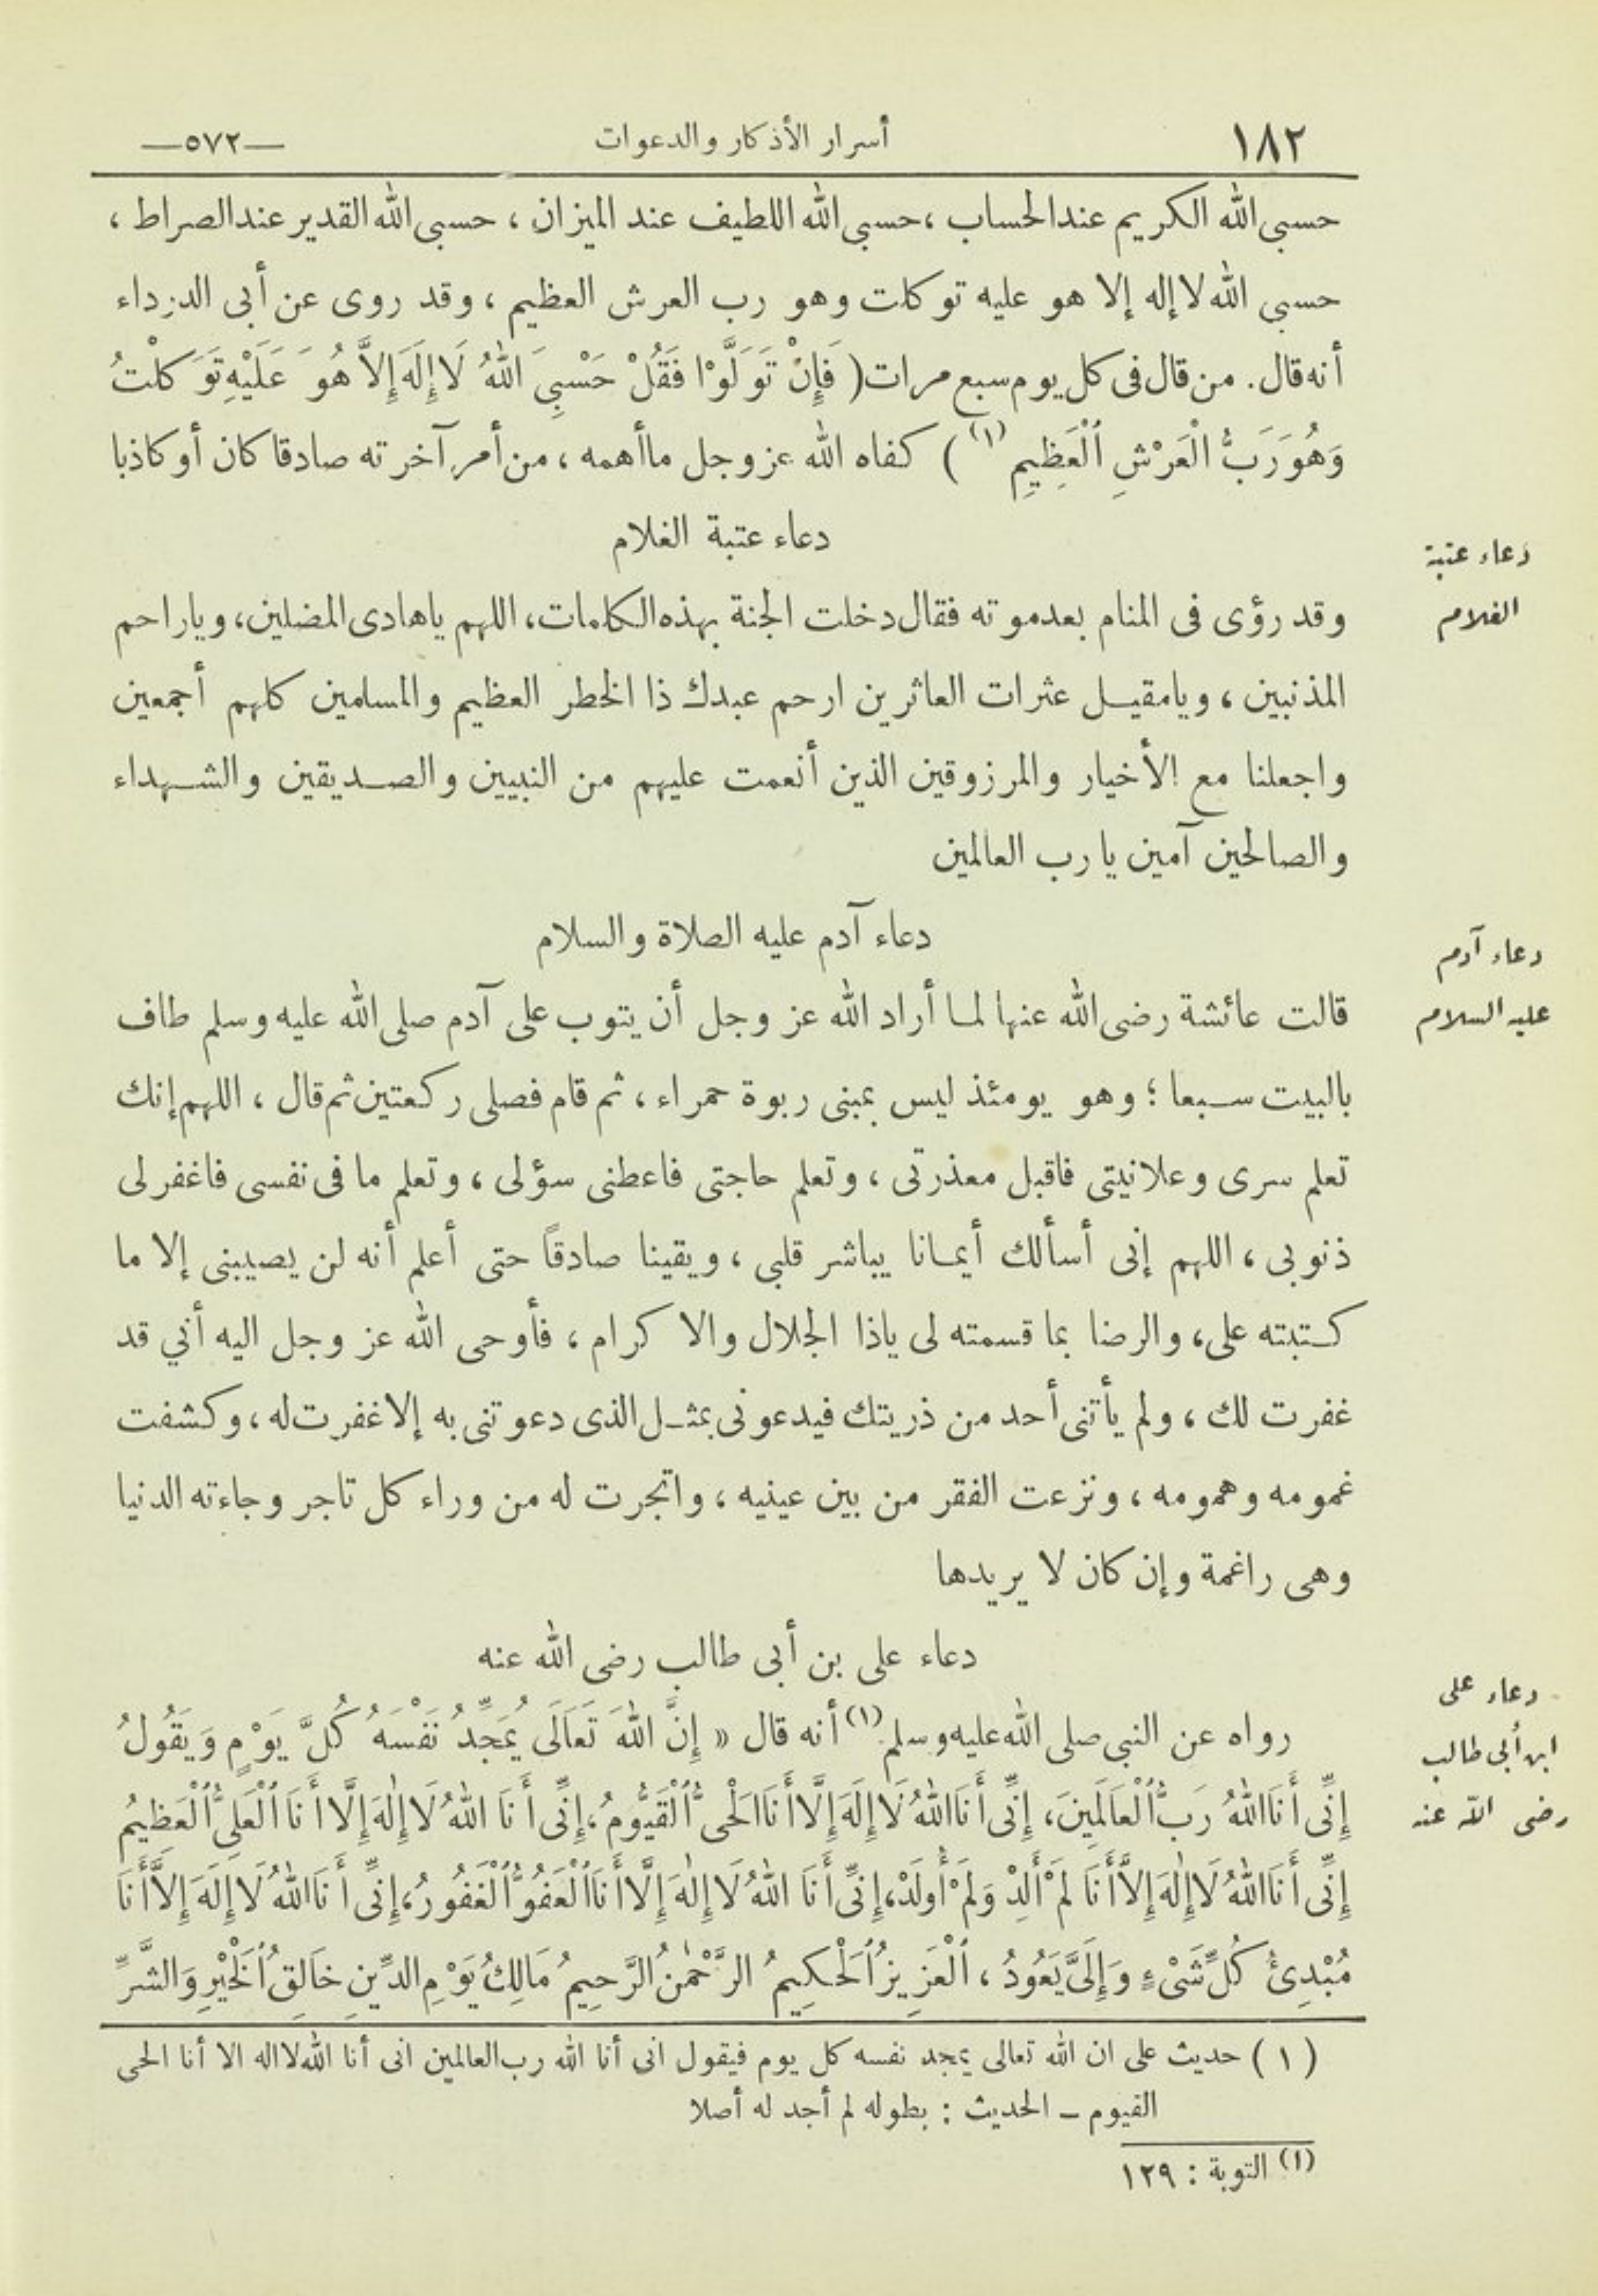 ١٨٢ أسرار الأذكار والدعوات —٥٧٢—
حسبى الله الكريم عند الحساب ، حسبى الله اللطيف عند الميزان ، حسبى الله القدير عند الصراط ،
حسبي الله لا إله إلا هو عليه توكلت وهو رب العرش العظيم ، وقد روى عن أبى الدرداء
أنه قال . من قال فى كل يوم سبع مرات ( فَإِنْ تَوَلَّوْا فَقُلْ حَسْبِيَ اللهُ لَا إِلَهَ إِلاَّ هُوَ عَلَيْهِ تَوَكَلْتُ
وَهُوَ رَبُّ الْعَرْشِ الْعَظِيمِ (١) ) كفاه الله عز وجل ما أهمه ، من أمر آخرته صادقا كان أو كاذبا
دعاء عتبة الغلام
دعاء عتبة
الغلام
وقد رؤى فى المنام بعد موته فقال دخلت الجنة بهذه الكلمات ، اللهم ياهادى المضلين ، وياراحم
المذنبين ، ويامقيل عثرات العاثرين ارحم عبدك ذا الخطر العظيم والمسلمين كلهم أجمعين
واجعلنا مع الأخيار والمرزوقين الذين أنعمت عليهم من النبيين والصديقين والشهداء
والصالحين آمين يارب العالمين
دعاء آدم عليه الصلاة والسلام
دعاء آدم
عليه السلام
قالت عائشة رضى الله عنها لما أراد الله عز وجل أن يتوب على آدم صلى الله عليه وسلم طاف
بالبيت سبعا ؛ وهو يومئذ ليس بمبنى ربوة حمراء ، ثم قام فصلى ركعتين ثم قال ، اللهم إنك
تعلم سرى وعلانيتى فاقبل معذرتى ، وتعلم حاجتى فاعطنى سؤلى ، وتعلم ما فى نفسى فاغفر لى
ذنوبى ، اللهم إنى أسألك أيمانا يباشر قلبى ، ويقينا صادقاً حتى أعلم أنه لن يصيبنى إلا ما
كتبته على ، والرضا بما قسمته لى ياذا الجلال والاكرام ، فأوحى الله عز وجل اليه أني قد
غفرت لك ، ولم يأتنى أحد من ذريتك فيدعونى بمثل الذى دعوتنى به إلا غفرت له ، وكشفت
غمومه وهمومه ، ونزعت الفقر من بين عينيه ، واتجرت له من وراء كل تاجر وجاءته الدنيا
وهى راغمة وإن كان لا يريدها
دعاء على بن أبى طالب رضى الله عنه
دعاء على
ابن أبى طالب
رضى الله عنه
رواه عن النبي صلى الله عليه وسلم (١) أنه قال « إِنَّ اللهَ تَعَالَى يُمَجِّدُ نَفْسَهُ كُلَّ يَوْمٍ وَيَقُولُ
إِنِّى أَنَا اللهُ رَبُّ الْعَالَمِينَ ، إِنِّى أَنَا اللهُ لَا إِلَهَ إِلَّا أَنَا الْحَىُّ الْقَيُّومُ ، إِنِّى أَنَا اللهُ لَا إِلَهَ إِلَّا أَنَا الْعَلِىُّ الْعَظِيمُ
إِنِّى أَنَا اللهُ لَا إِلَهَ إِلاَّ أَنَا لَمْ أَلِدْ وَلَمْ أُولَدْ ، إِنِّى أَنَا اللهُ لَا إِلَهَ إِلَّا أَنَا الْعَفُوُّ الْغَفُورُ ، إِنِّى أَنَا اللهُ لَا إِلَهَ إِلاَّ أَنَا
مُبْدِئُ كُلِّ شَىْءٍ وَإِلَىَّ يَعُودُ ، الْعَزِيزُ الْحَكِيمُ الرَّحْمٰنُ الرَّحِيمُ مَالِكُ يَوْمِ الدِّينِ خَالِقُ الْخَيْرِ وَالشَّرِّ
( ١ ) حديث على ان الله تعالى يمجد نفسه كل يوم فيقول انى أنا الله رب العالمين انى أنا الله لا اله الا أنا الحى
القيوم ــ الحديث : بطوله لم أجد له أصلا
(١) التوبة : ١٢٩